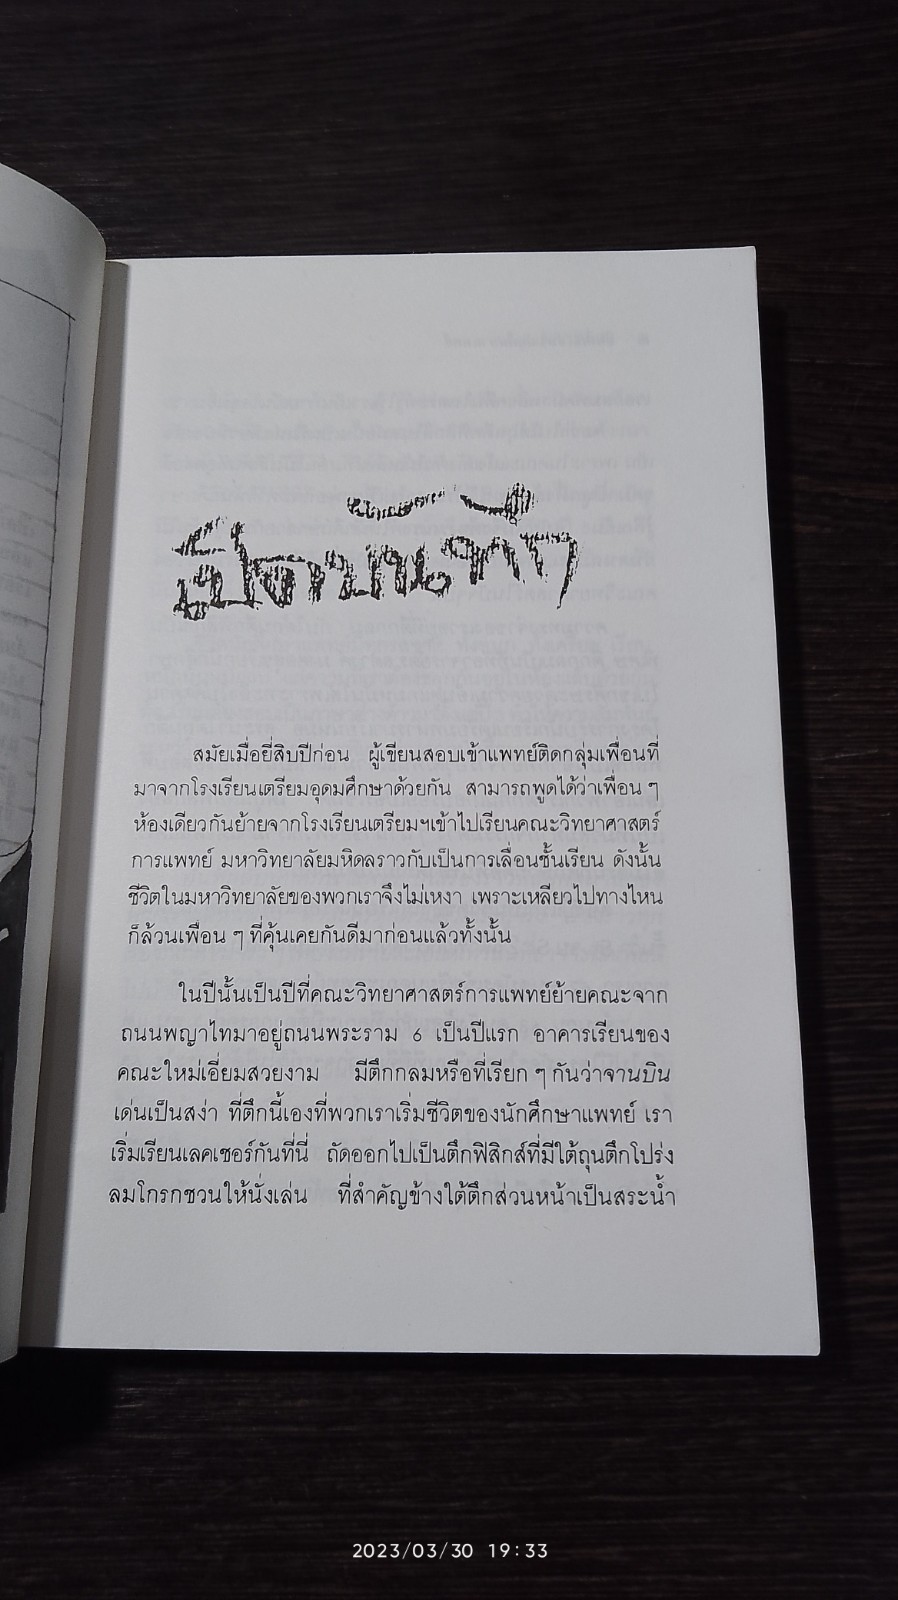 เปิดบันทึก
สมัยเมื่อยี่สิบปีก่อน ผู้เขียนสอบเข้าแพทย์ติดกลุ่มเพื่อนที่
มาจากโรงเรียนเตรียมอุดมศึกษาด้วยกัน สามารถพูดได้ว่าเพื่อน ๆ
ห้องเดียวกันย้ายจากโรงเรียนเตรียมฯเข้าไปเรียนคณะวิทยาศาสตร์
การแพทย์ มหาวิทยาลัยมหิดลราวกับเป็นการเลื่อนชั้นเรียน ดังนั้น
ชีวิตในมหาวิทยาลัยของพวกเราจึงไม่เหงา เพราะเหลียวไปทางไหน
ก็ล้วนเพื่อน ๆ ที่คุ้นเคยกันดีมาก่อนแล้วทั้งนั้น
ในปีนั้นเป็นปีที่คณะวิทยาศาสตร์การแพทย์ย้ายคณะจาก
ถนนพญาไทมาอยู่ถนนพระราม ๖ เป็นปีแรก อาคารเรียนของ
คณะใหม่เอี่ยมสวยงาม มีตึกกลมหรือที่เรียก ๆ กันว่าจานบิน
เด่นเป็นสง่า ที่ตึกนี้เองที่พวกเราเริ่มชีวิตของนักศึกษาแพทย์ เรา
เริ่มเรียนเลคเชอร์กันที่นี่ ถัดออกไปเป็นตึกฟิสิกส์ที่มีใต้ถุนตึกโปร่ง
ลมโกรกชวนให้นั่งเล่น ที่สำคัญข้างใต้ตึกส่วนหน้าเป็นสระน้ำ
2023/03/30 19:33